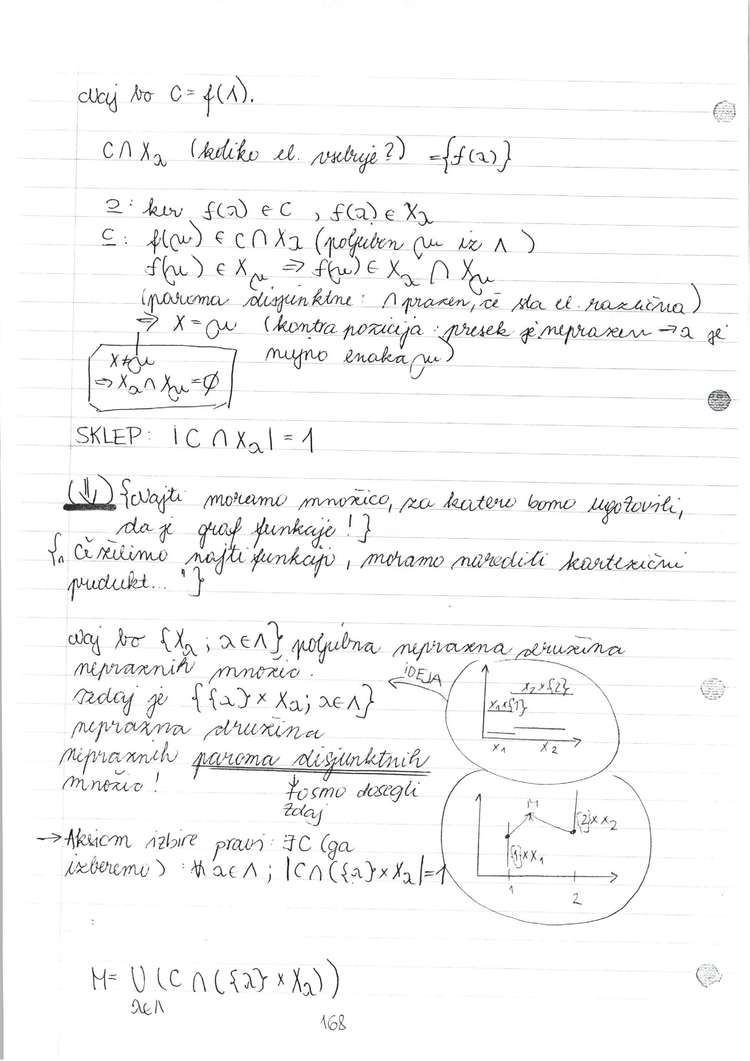 Naj bo C = f(Λ).
C ∩ Xλ (koliko el. vsebuje?) = {f(λ)}
⊇: ker f(λ) ∈ C , f(λ) ∈ Xλ
⊆: f(μ) ∈ C ∩ Xλ (poljuben μ iz Λ)
f(μ) ∈ Xμ ⇒ f(μ) ∈ Xλ ∩ Xμ
(paroma disjunktne: ∩ prazen, če sta el. različna)
⇒ X = μ (kontra pozicija: presek je neprazen → λ je
nujno enaka μ)
X ≠ μ
⇒ Xλ ∩ Xμ = ∅
SKLEP: |C ∩ Xλ| = 1
(⇓) {Najti moramo množico, za katero bomo ugotovili,
da je graf funkcije!}
{" Če želimo najti funkcijo, moramo narediti kartezični
produkt... "}
Naj bo {Xλ ; λ∈Λ} poljubna neprazna družina
nepraznih množic.
IDEJA
Sedaj je {{λ} × Xλ; λ∈Λ}
neprazna družina
nepraznih paroma disjunktnih
množic!
to smo dosegli
zdaj
X2×{2}
X1×{1}
X1 X2
→ Aksiom izbire pravi: ∃C (ga
izberemo) : ∀λ∈Λ ; |C∩({λ}×Xλ|=1
M
{2}×X2
{1}×X1
1 2
:
M = ∪ (C ∩ ({λ} × Xλ))
λ∈Λ
168